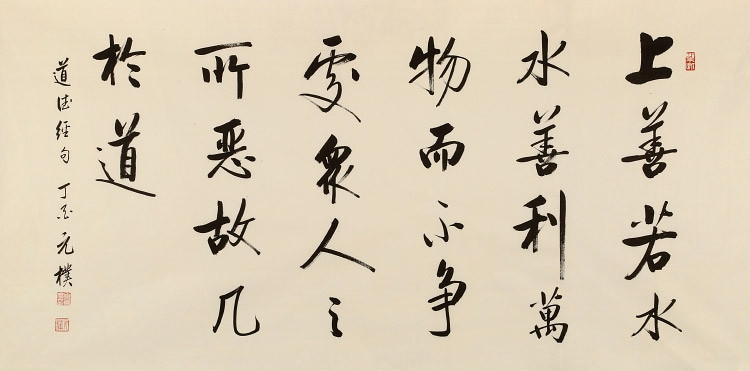 上善若水
水善利萬
物而不争
處衆人之
所惡故几
於道
道德經句 丁酉 元樸